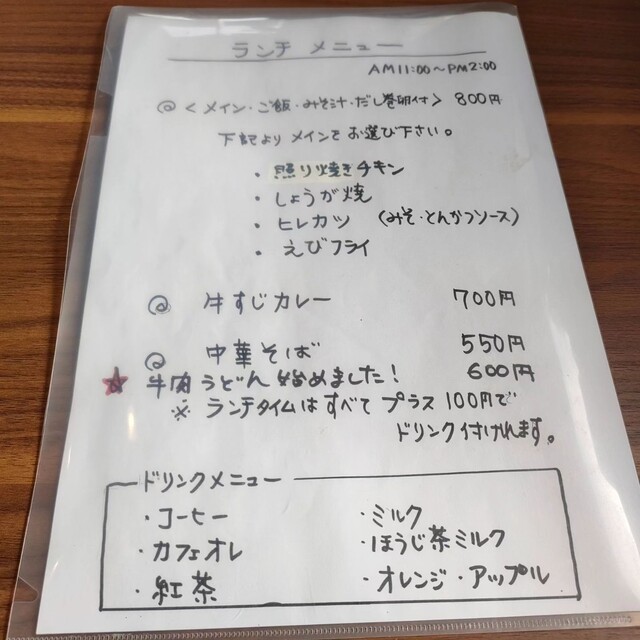 ランチ メニュー
AM11:00～PM2:00
@ <メイン・ご飯・みそ汁・だし巻卵付> 800円
下記より メインを お選び下さい。
・ 照り焼きチキン
・ しょうが焼
・ ヒレカツ (みそ・とんかつソース)
・ えびフライ
@ 牛すじカレー 700円
@ 中華そば 550円
★ 牛肉うどん 始めました! 600円
※ ランチタイムはすべて プラス 100円で
ドリンク付けれます。
ドリンクメニュー
・コーヒー ・ミルク
・カフェオレ ・ほうじ茶ミルク
・紅茶 ・オレンジ・アップル